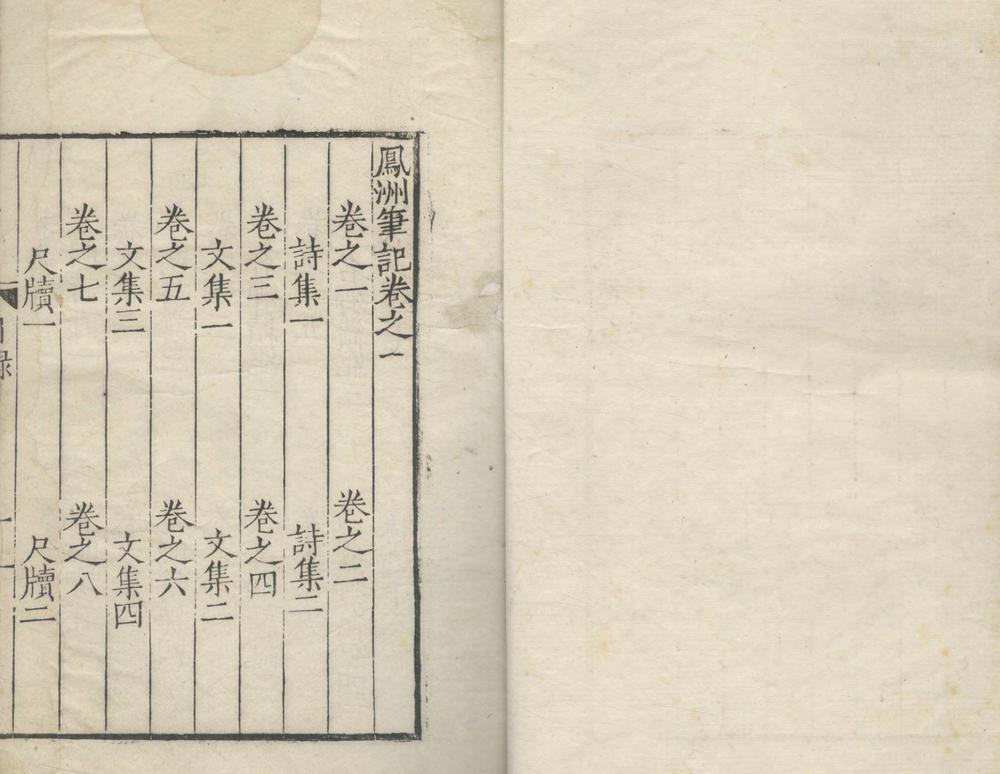 鳳洲筆記卷之一
卷之一　卷之二
詩集一　詩集二
卷之三　卷之四
文集一　文集二
卷之五　卷之六
文集三　文集四
卷之七　卷之八
尺牘一　尺牘二
目録　一